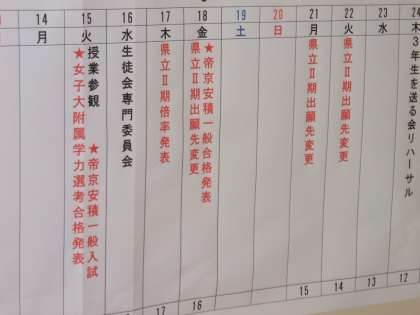 14
月
15
火
授業参観
★帝京安積一般入試
★女子大附属学力選考合格発表
16
水
生徒会専門委員会
17
木
県立Ⅱ期倍率発表
18
金
★帝京安積一般合格発表
県立Ⅱ期出願先変更
19
土
20
日
21
月
県立Ⅱ期出願先変更
22
火
県立Ⅱ期出願先変更
23
水
24
木
3年生を送る会リハーサル
17
16
15
14
13
12